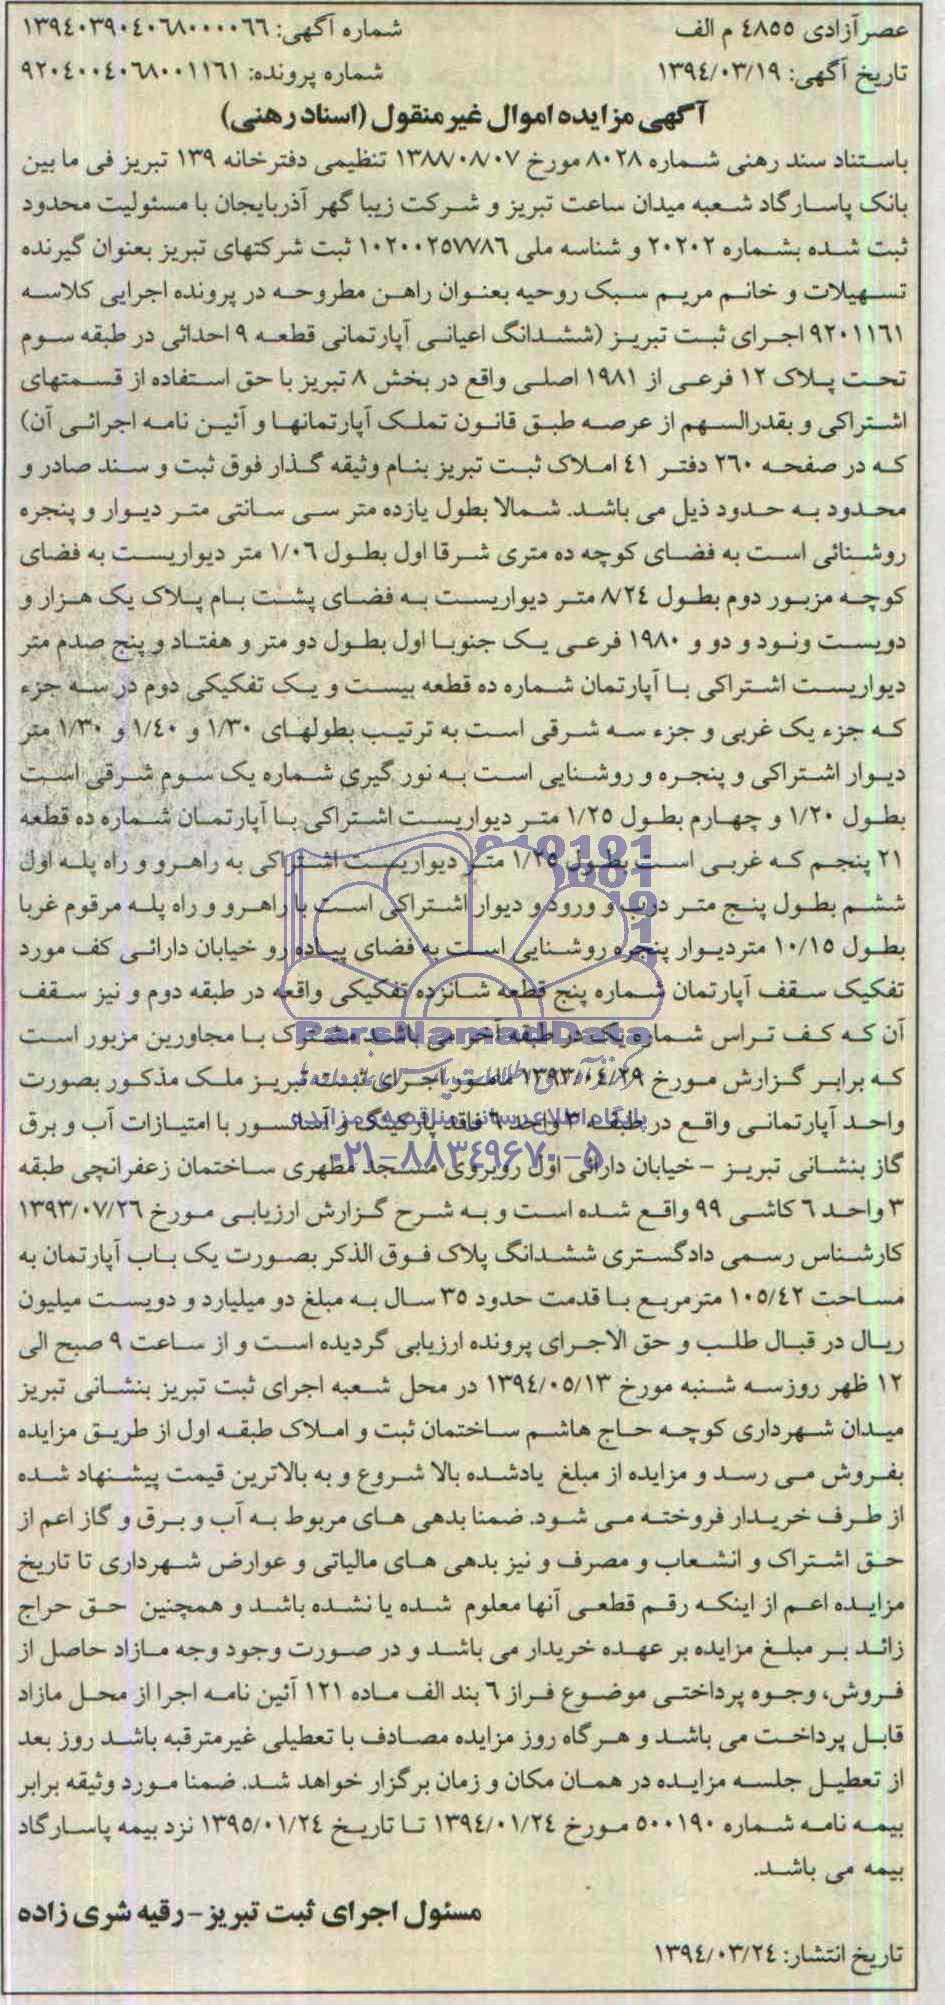 عصر آزادی ٤٨٥٥ م الف
شماره آگهی: ١٣٩٤٠٣٩٠٤٠٦٨٠٠٠٠٦٦
تاریخ آگهی: ١٣٩٤/٠٣/١٩
شماره پرونده: ٩٢٠٤٠٠٤٠٦٨٠٠١١٦١
آگهی مزایده اموال غیر منقول (اسناد رهنی)
باستناد سند رهنی شماره ٨٠٢٨ مورخ ١٣٨٨/٠٨/٠٧ تنظیمی دفترخانه ١٣٩ تبریز فی ما بین
بانک پاسارگاد شعبه میدان ساعت تبریز و شرکت زیبا گهر آذربایجان با مسئولیت محدود
ثبت شده بشماره ٢٠٢٠٢ و شناسه ملی ١٠٢٠٠٢٥٧٧٨٦ ثبت شرکتهای تبریز بعنوان گیرنده
تسهیلات و خانم مریم سبک روحیه بعنوان راهن مطروحه در پرونده اجرایی کلاسه
٩٢٠١١٦١ اجرای ثبت تبریز (ششدانگ اعیانی آپارتمانی قطعه ٩ احداثی در طبقه سوم
تحت پلاک ١٢ فرعی از ١٩٨١ اصلی واقع در بخش ٨ تبریز با حق استفاده از قسمتهای
اشتراکی و بقدرالسهم از عرصه طبق قانون تملک آپارتمانها و آئین نامه اجرائی آن)
که در صفحه ٢٦٠ دفتر ٤١ املاک ثبت تبریز بنام وثیقه گذار فوق ثبت و سند صادر و
محدود به حدود ذیل می باشد. شمالا بطول یازده متر سی سانتی متر دیوار و پنجره
روشنائی است به فضای کوچه ده متری شرقا اول بطول ١/٠٦ متر دیواریست به فضای
کوچه مزبور دوم بطول ٨/٢٤ متر دیواریست به فضای پشت بام پلاک یک هزار و
دویست ونود و دو و ١٩٨٠ فرعی یک جنوبا اول بطول دو متر و هفتاد و پنج صدم متر
دیواریست اشتراکی با آپارتمان شماره ده قطعه بیست و یک تفکیکی دوم در سه جزء
که جزء یک غربی و جزء سه شرقی است به ترتیب بطولهای ١/٣٠ و ١/٤٠ و ١/٣٠ متر
دیوار اشتراکی و پنجره و روشنایی است به نور گیری شماره یک سوم شرقی است
بطول ١/٢٠ و چهارم بطول ١/٢٥ متر دیواریست اشتراکی با آپارتمان شماره ده قطعه
٢١ پنجم که غربی است بطول ١/٢٥ متر دیواریست اشتراکی به راهرو و راه پله اول
ششم بطول پنج متر درب و ورود و دیوار اشتراکی است با راهرو و راه پله مرقوم غربا
بطول ١٠/١٥ متردیوار پنجره روشنایی است به فضای پیاده رو خیابان دارائی کف مورد
تفکیک سقف آپارتمان شماره پنج قطعه شانزده تفکیکی واقعه در طبقه دوم و نیز سقف
آن که کف تراس شماره یک در طبقه آخر می باشد مشترک با مجاورین مزبور است
ParsNamadData
که برابر گزارش مورخ ١٣٩٣/٠٤/٢٩ مامور اجرای ثبت تبریز ملک مذکور بصورت
واحد آپارتمانی واقع در طبقه ٣ واحد ٦ فاقد پارکینگ و آسانسور با امتیازات آب و برق
پایگاه اطلاع رسانی مناقصه و مزایده
گاز بنشانی تبریز - خیابان دارائی اول روبروی مسجد مطهری ساختمان زعفرانچی طبقه
۰۲۱-۸۸۳۴۹۶۷۰-۵
٣ واحد ٦ کاشی ٩٩ واقع شده است و به شرح گزارش ارزیابی مورخ ١٣٩٣/٠٧/٢٦
کارشناس رسمی دادگستری ششدانگ پلاک فوق الذکر بصورت یک باب آپارتمان به
مساحت ١٠٥/٤٢ مترمربع با قدمت حدود ٣٥ سال به مبلغ دو میلیارد و دویست میلیون
ریال در قبال طلب و حق الاجرای پرونده ارزیابی گردیده است و از ساعت ٩ صبح الی
١٢ ظهر روزسه شنبه مورخ ١٣٩٤/٠٥/١٣ در محل شعبه اجرای ثبت تبریز بنشانی تبریز
میدان شهرداری کوچه حاج هاشم ساختمان ثبت و املاک طبقه اول از طریق مزایده
بفروش می رسد و مزایده از مبلغ یادشده بالا شروع و به بالاترین قیمت پیشنهاد شده
از طرف خریدار فروخته می شود. ضمنا بدهی های مربوط به آب و برق و گاز اعم از
حق اشتراک و انشعاب و مصرف و نیز بدهی های مالیاتی و عوارض شهرداری تا تاریخ
مزایده اعم از اینکه رقم قطعی آنها معلوم شده یا نشده باشد و همچنین حق حراج
زائد بر مبلغ مزایده بر عهده خریدار می باشد و در صورت وجود وجه مازاد حاصل از
فروش، وجوه پرداختی موضوع فراز ٦ بند الف ماده ١٢١ آئین نامه اجرا از محل مازاد
قابل پرداخت می باشد و هرگاه روز مزایده مصادف با تعطیلی غیرمترقبه باشد روز بعد
از تعطیل جلسه مزایده در همان مکان و زمان برگزار خواهد شد. ضمنا مورد وثیقه برابر
بیمه نامه شماره ٥٠٠١٩٠ مورخ ١٣٩٤/٠١/٢٤ تا تاریخ ١٣٩٥/٠١/٢٤ نزد بیمه پاسارگاد
بیمه می باشد.
مسئول اجرای ثبت تبریز- رقیه شری زاده
تاریخ انتشار: ١٣٩٤/٠٣/٢٤